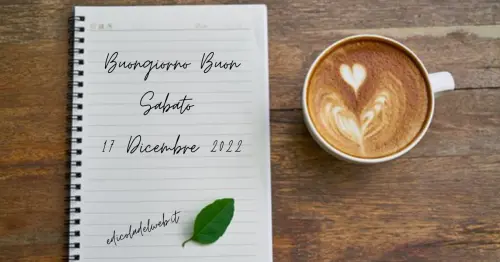 Buongiorno Buon
Sabato
17 Dicembre 2022
edicoladelweb.it